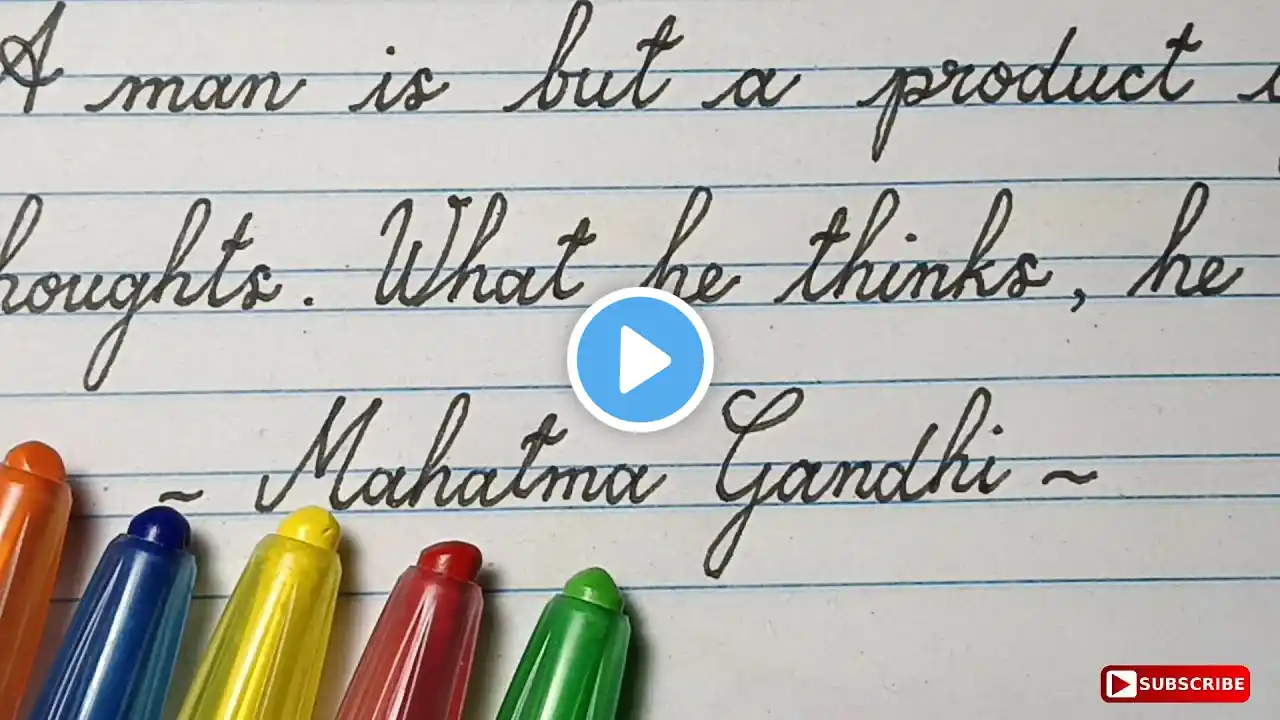 A man is but a product
houghts. What he thinks, he
~ Mahatma Gandhi ~
SUBSCRIBE